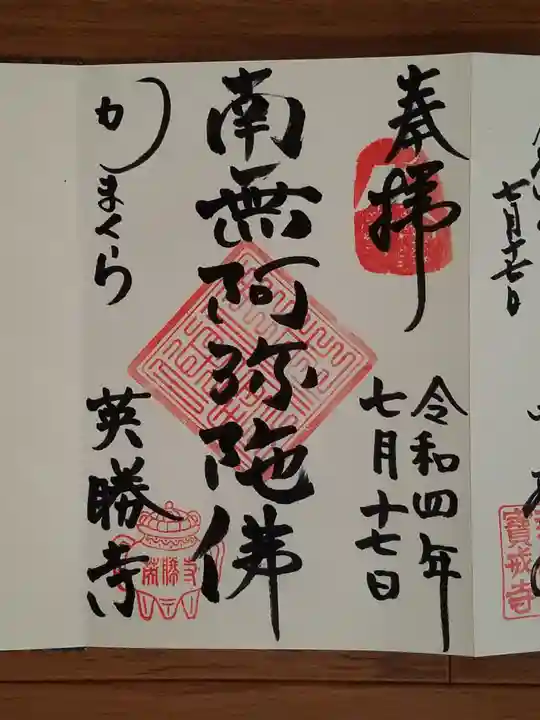 七月十七日
寶戒寺
奉拝
令和四年
七月十七日
南無阿弥陀佛
かまくら
英勝寺
英勝寺